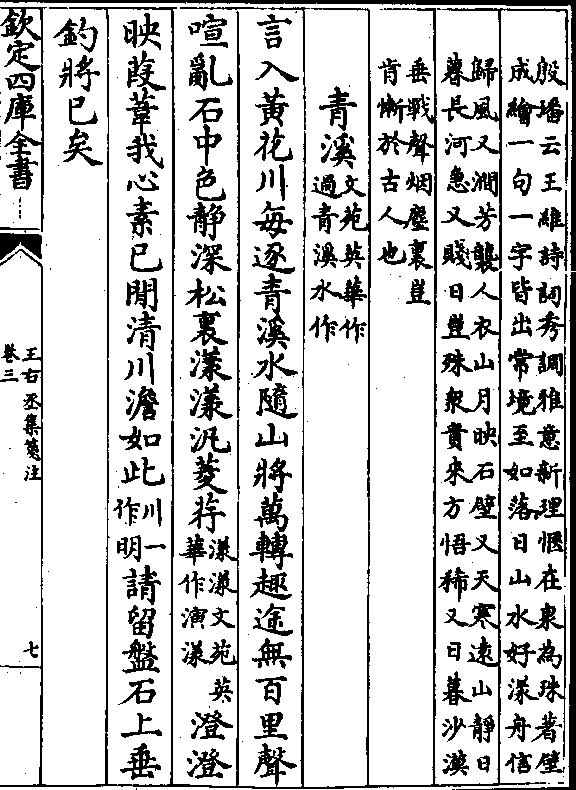 殷璠云王維詩詞秀調雅意新理愜在泉為珠著壁
成繪一句一字皆出常境至如落日山水好漾舟信
歸風又澗芳襲人衣山月映石壁又天寒遠山靜日
暮長河急又賤日豈殊衆貴來方悟稀又日暮沙漠
垂戰聲烟塵裏豈
肯慚於古人也
青溪文苑英華作過青溪水作
言入黃花川每逐青溪水隨山將萬轉趣途無百里聲
喧亂石中色靜深松裏漾漾汎菱荇漾漾文苑英華作演漾澄澄
映葭葦我心素已閒清川澹如此川一作明請留盤石上垂
釣將已矣
欽定四庫全書
王右丞集箋注
卷三
七